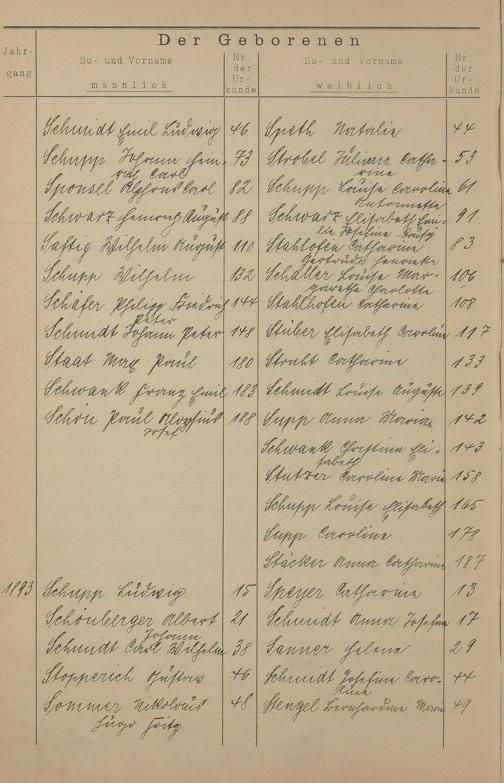 Der Geborenen
Jahr-
gang
Zu- und Vorname
männlich
Nr.
der
Ur-
kunde
Zu- und Vorname
weiblich
Nr.
der
Ur-
kunde
Schmidt Emil Ludwig 46 Speth Natalie 44
Schupp Johann Hein- 73 Strobel Juliane Catha- 53
rich Carl rine
Sponsel Alphons Carl 82 Schupp Louise Caroline 61
Antonnette
Schwarz Heinrich August 88 Schwarz Elisabeth Emi- 91
lie Josefine
Saftig Wilhelm August 110 Stahlhofen Catharine 83
Gertrude Henriette
Schupp Wilhelm 132 Schäller Louise Mar- 106
garethe Charlotte
Schäfer Philipp Friedrich 144 Stahlhofen Catharine 108
Peter
Schmidt Johann Peter 148 Stüber Elisabeth Caroline 117
Staat Max Paul 180 Struht Catharine 133
Schwank Franz Emil 183 Schmidt Louise Auguste 139
Schön Paul Aloysius 188 Supp Anna Maria 142
Josef
Schwank Christine Eli- 143
sabeth
Stutzer Caroline Marie 158
Schupp Louise Elisabeth 165
Supp Caroline 178
Stäcker Anna Catharine 187
1893 Schupp Ludwig 15 Speyer Catharine 13
Schönberger Albert 21 Schmidt Anna Josefine 17
Johann
Schmidt Carl Wilhelm 38 Sanner Helene 29
Stopperich Gustav 46 Schmidt Josefine Caro- 44
line
Sommer Nikolaus 48 Stengel Bernhardine Marie 49
Hugo Fritz